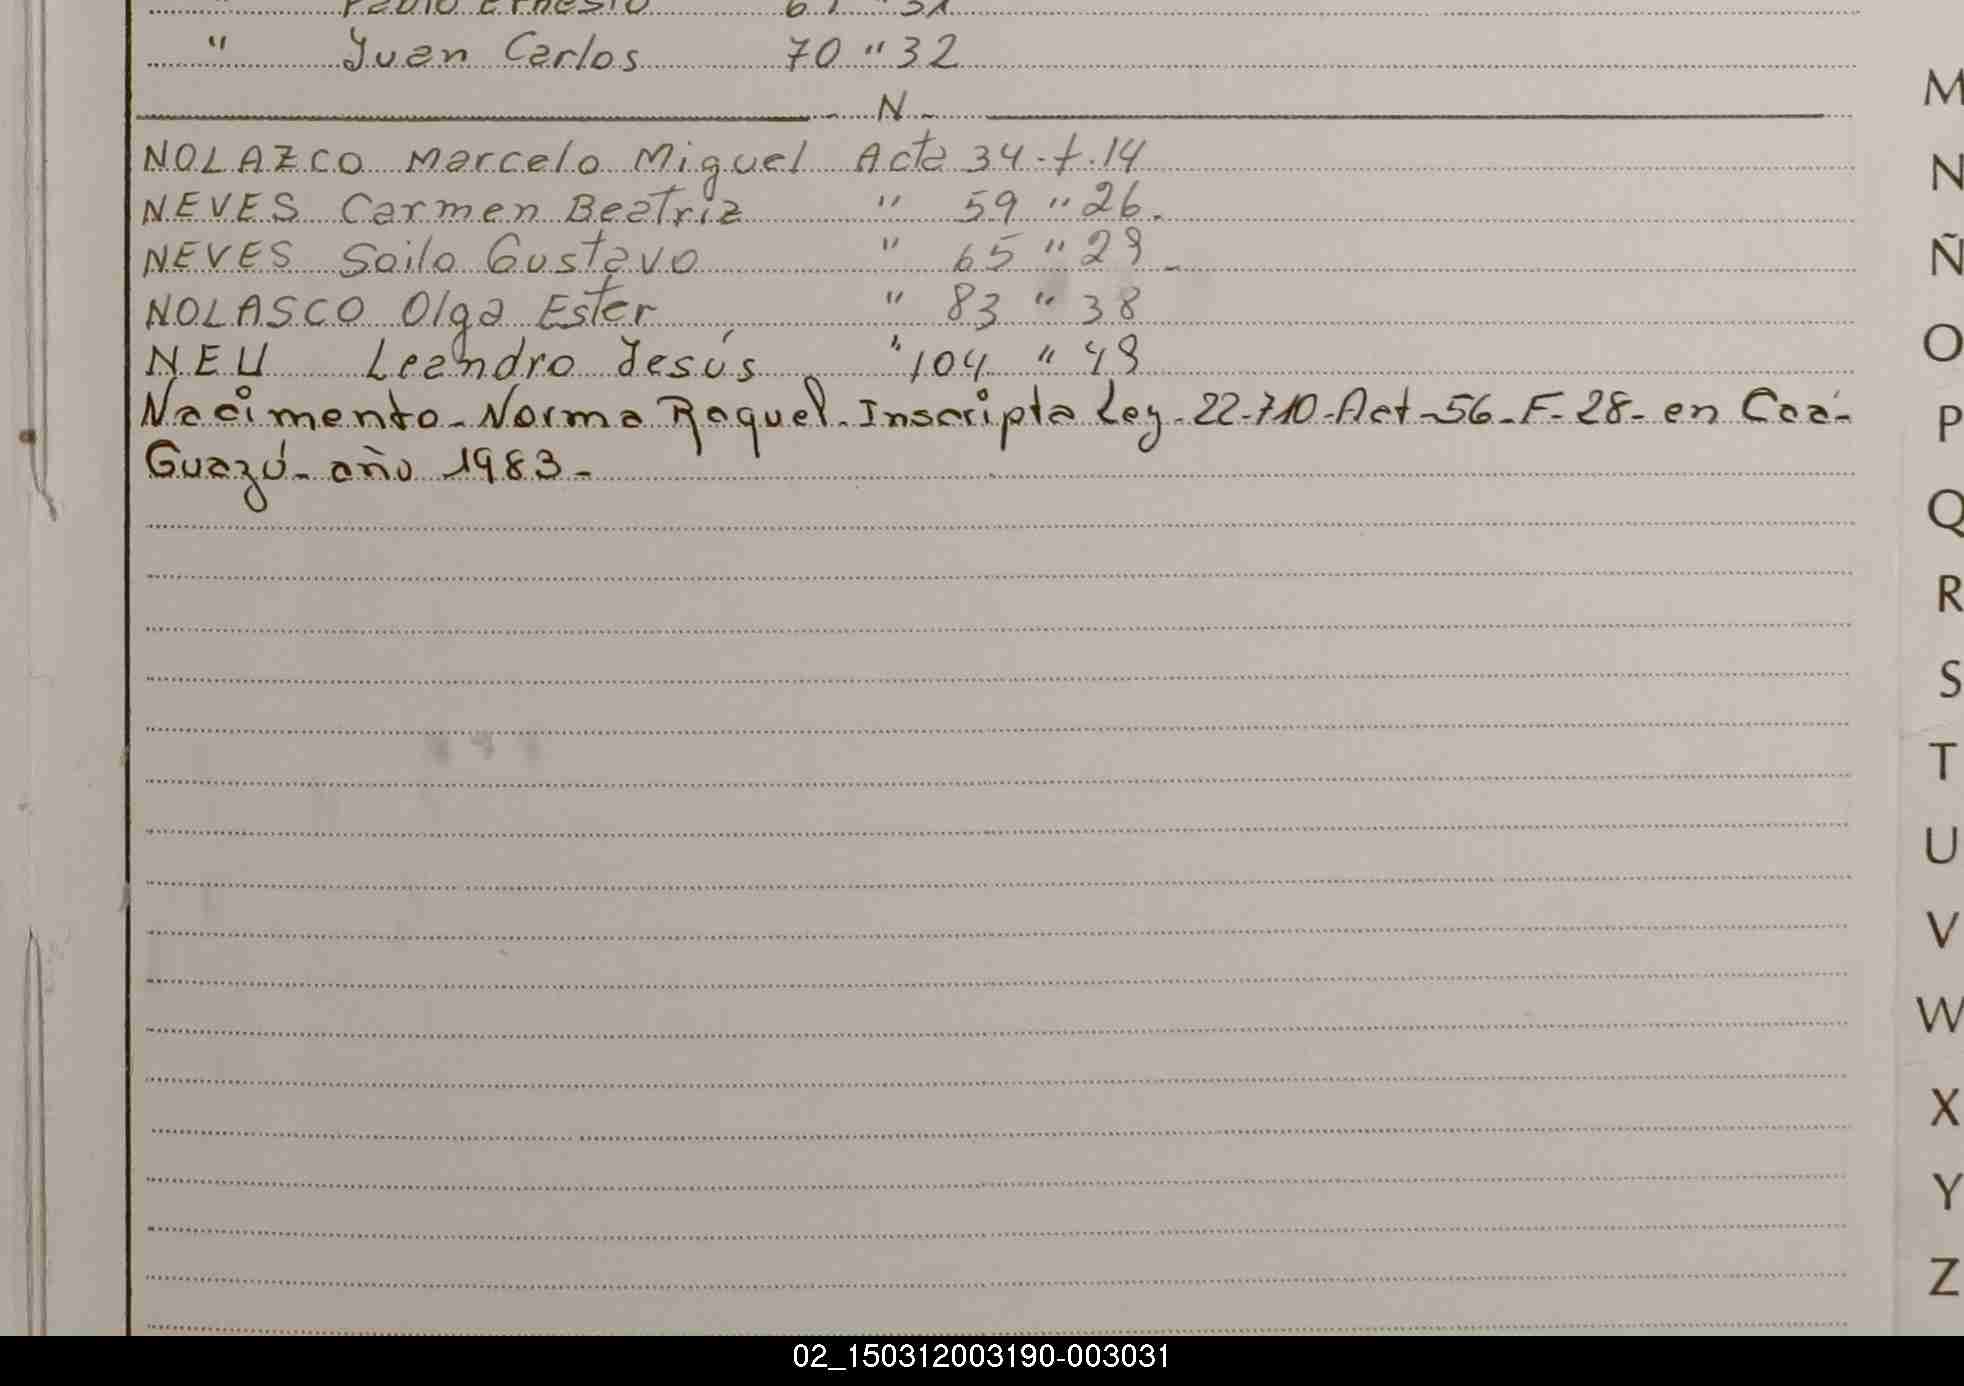 " Pablo Ernesto "
" Juan Carlos 70 " 32
N
NOLAZCO Marcelo Miguel Acta 34 - f. 14
NEVES Carmen Beatriz " 59 " 26.
NEVES Soilo Gustavo " 65 " 29 -
NOLASCO Olga Ester " 83 " 38
NEU Leandro Jesús " 104 " 49
Nacimento - Norma Raquel - Inscripta Ley - 22-710 - Act - 56 - F - 28 - en Caá-
Guazú - año 1983 -
M
N
Ñ
O
P
Q
R
S
T
U
V
W
X
Y
Z
02_150312003190-003031